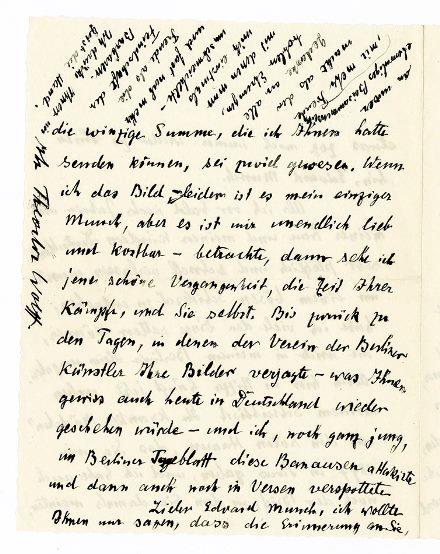 die winzige Summe, die ich Ihnen hatte
senden können, sei zuviel gewesen. Wenn
ich das Bild – leider ist es mein einziger
Munch, aber es ist mir unendlich lieb
und kostbar – betrachte, dann sehe ich
jene schöne Vergangenheit, die Zeit Ihrer
Kämpfe, und Sie selbst. Bis zurück zu
den Tagen, in denen der Verein der Berliner
Künstler Ihre Bilder verjagte – was Ihnen
gewiss auch heute in Deutschland wieder
geschehen würde – und ich, noch ganz jung,
im Berliner Tageblatt diese Banausen attakierte
und dann auch noch in Versen verspottete
Lieber Edvard Munch, ich wollte
Ihnen nur sagen, dass die Erinnerung an Sie,
an unsere
mir mehr Freude
macht als der
Gedanke
an alle
Ehrungen,
mit denen man
mich einstmals
umschmeichelte –
und fast noch mehr
Freude als die
Feindschaft der
Barbaren.
Ich drücke
Ihnen die Hand.
Ihr Theodor Wolff